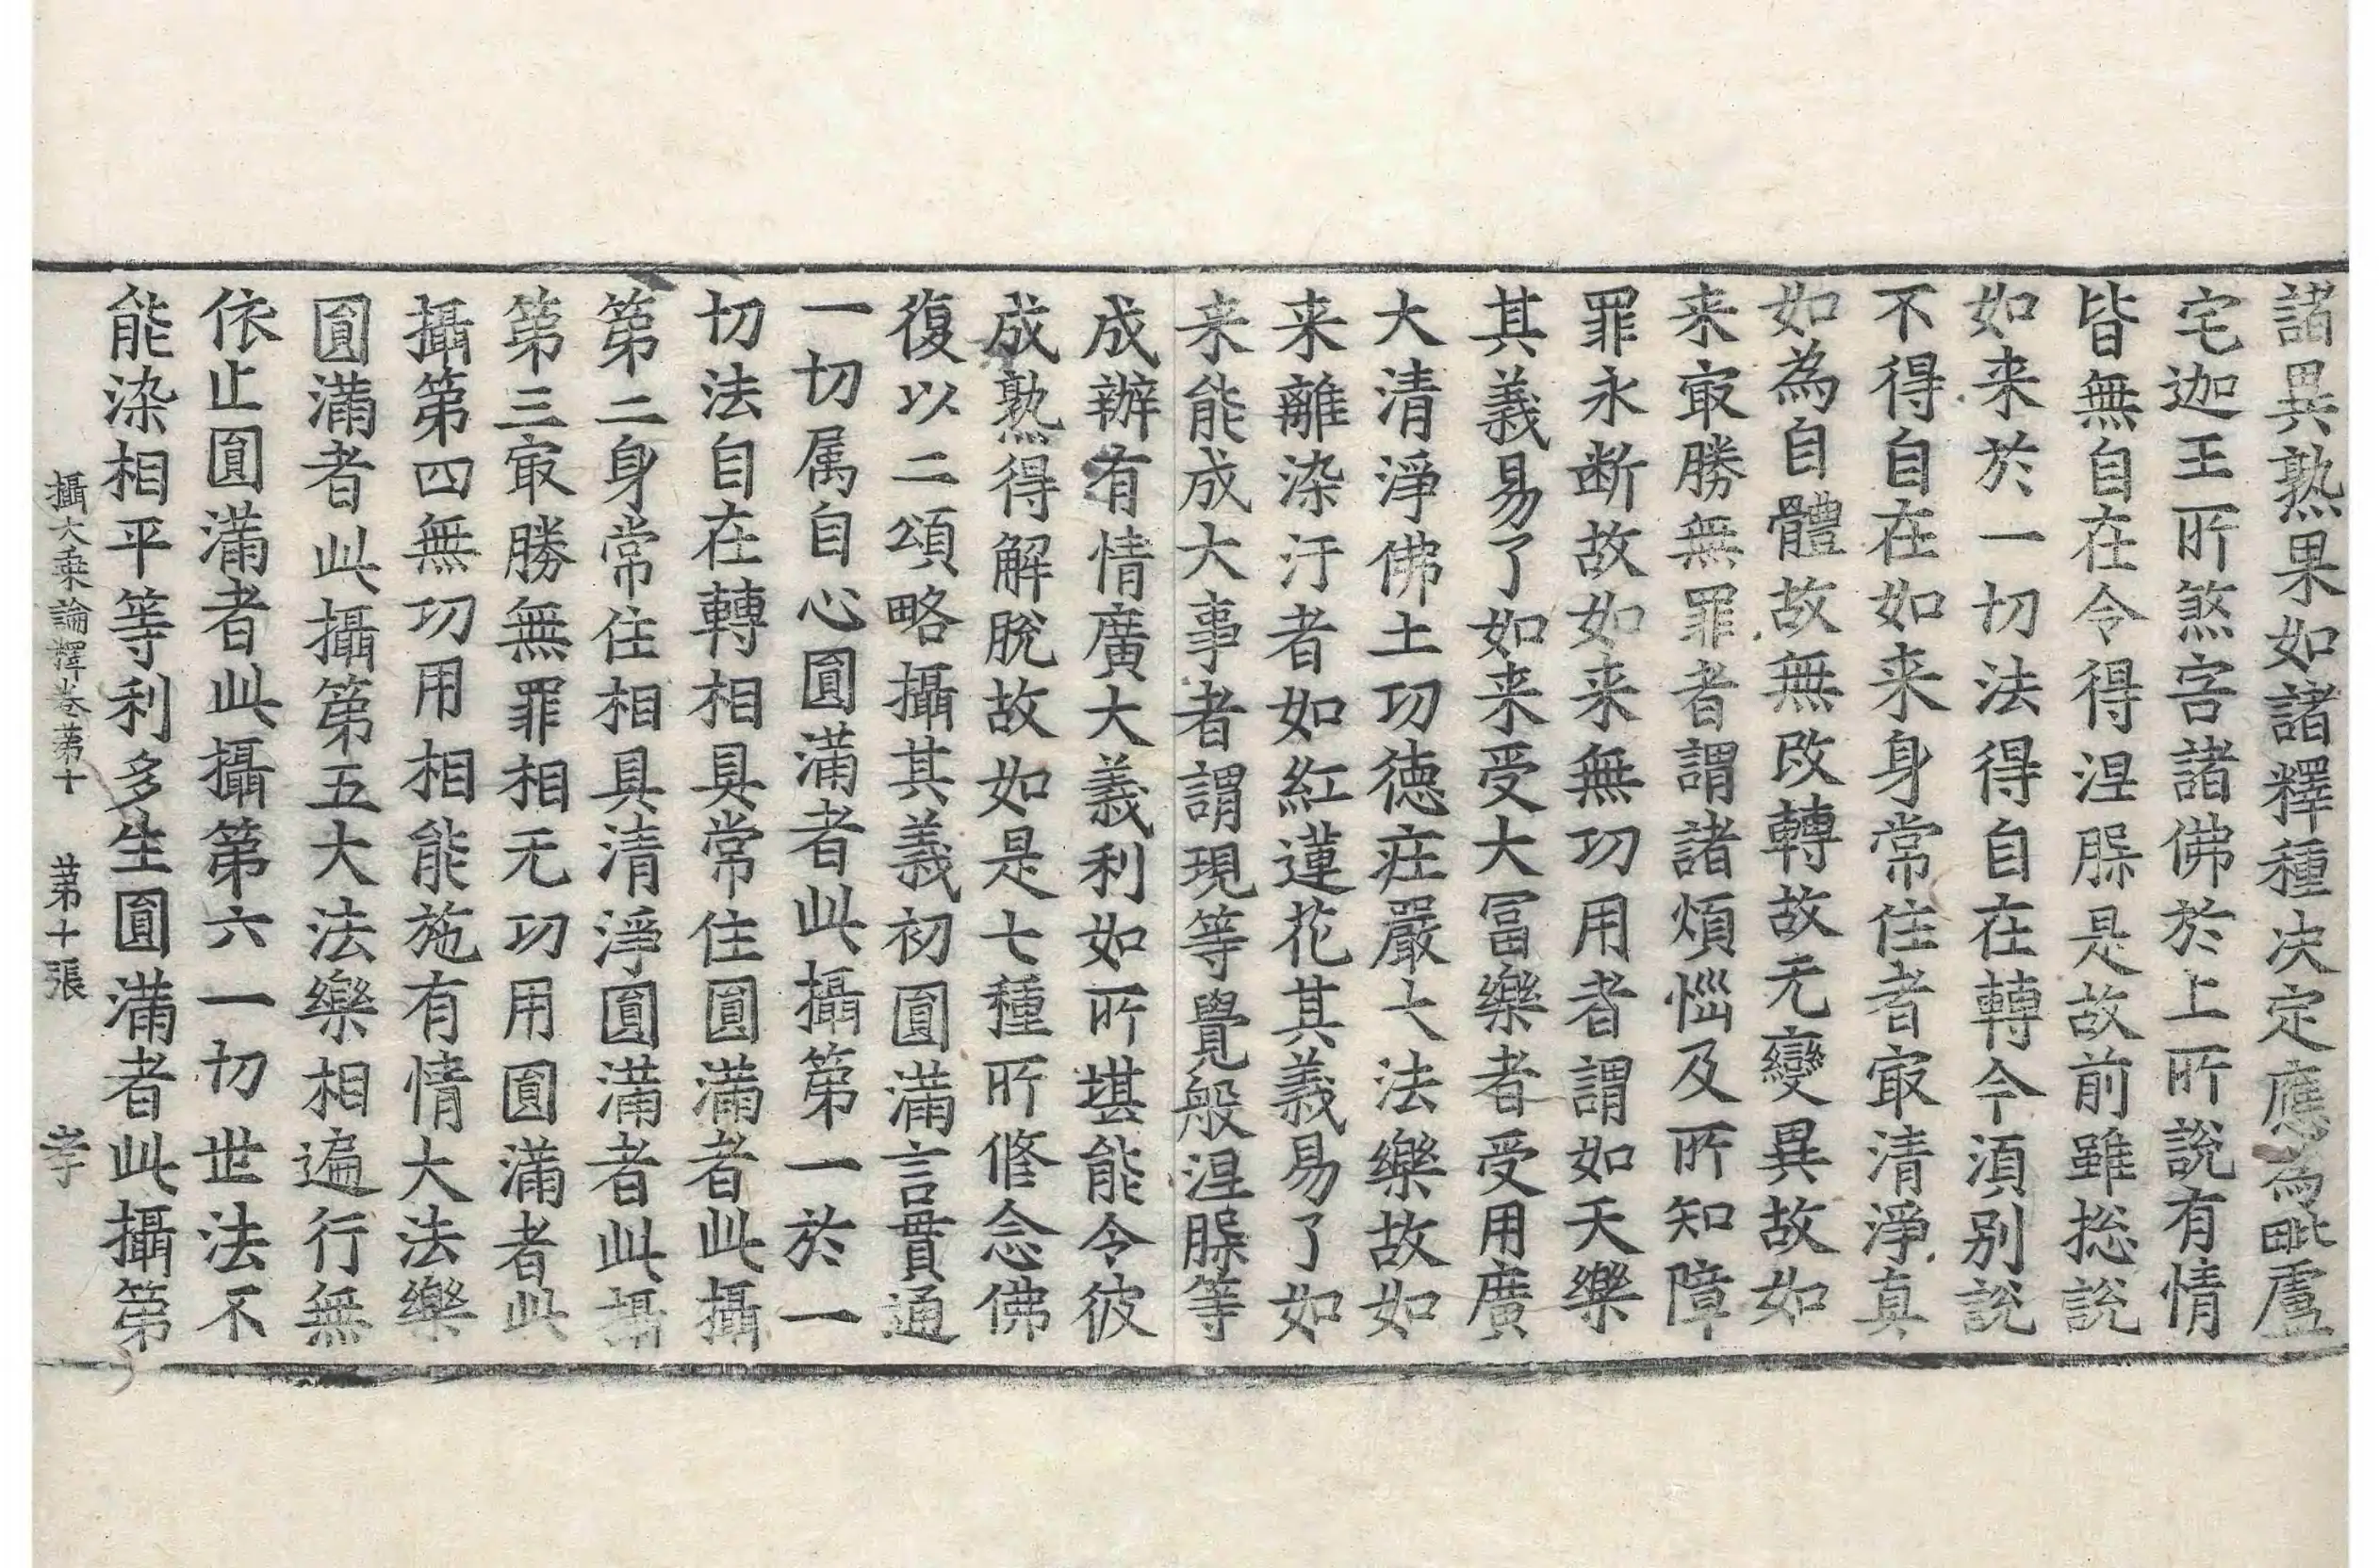 諸異熟果如諸釋種决定應為毗盧
宅迦王所煞害諸佛於上所說有情
皆無自在令得涅槃是故前雖捴說
如来於一切法得自在轉今湏别說
不得自在如来身常住者㝡清淨真
如為自體故無改轉故无變異故如
来㝡勝無罪者謂諸煩惱及所知障
罪永断故如来無功用者謂如天樂
其義易了如来受大冨樂者受用廣
大清淨佛土功徳莊嚴大法樂故如
来離染汙者如紅蓮花其義易了如
来能成大事者謂現等覺般涅槃等
成辦有情廣大義利如所堪能令彼
成熟得解脫故如是七種所修念佛
復以二頌略攝其義初圓滿言貫通
一切属自心圓滿者此攝第一於一
切法自在轉相具常住圓滿者此攝
第二身常住相具清淨圓滿者此攝
第三㝡勝無罪相无功用圓滿者此
攝第四無功用相能施有情大法樂
圓滿者此攝第五大法樂相遍行無
依止圓滿者此攝第六一切世法不
能染相平等利多生圓滿者此攝第
攝大乗論釋卷苐十 苐十張 孝